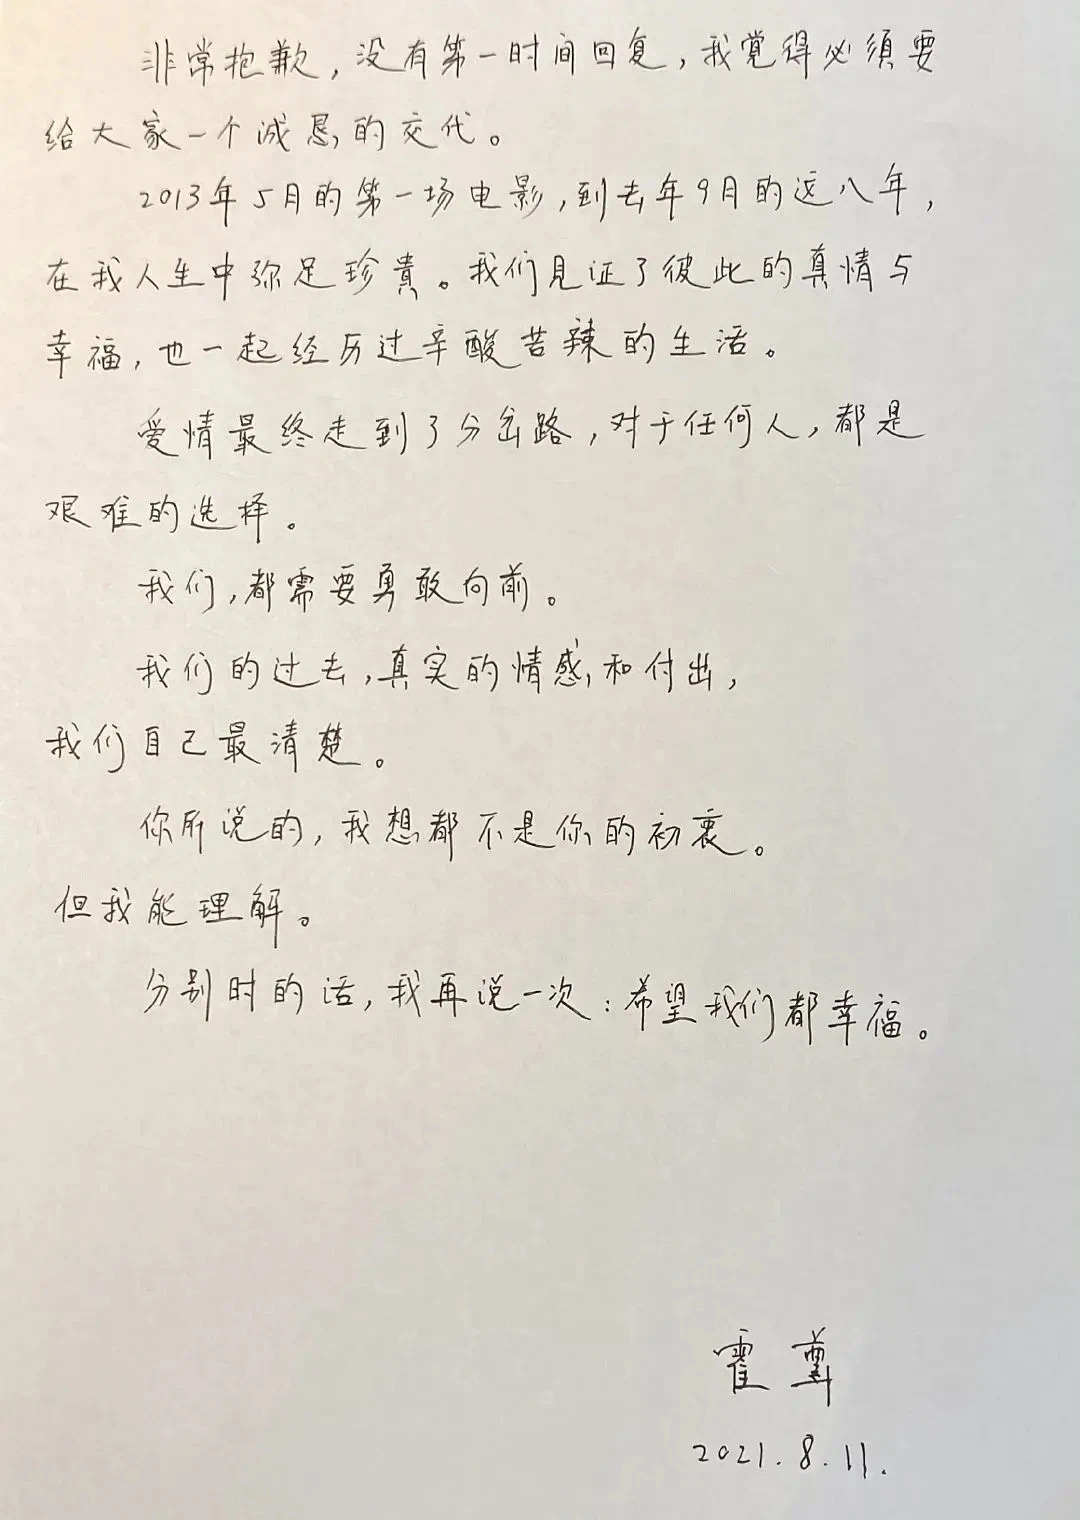 非常抱歉，没有第一时间回复，我覺得必须要
给大家一个诚恳的交代。
2013年5月的第一场电影，到去年9月的这八年，
在我人生中弥足珍貴。我们见证了彼此的真情与
幸福，也一起经历过辛酸苦辣的生活。
爱情最终走到了分岔路，对于任何人，都是
艰难的选择。
我们，都需要勇敢向前。
我们的过去，真实的情感和付出，
我们自己最清楚。
你所说的，我想都不是你的初衷。
但我能理解。
分别时的话，我再说一次：希望我们都幸福。
霍尊
2021.8.11.